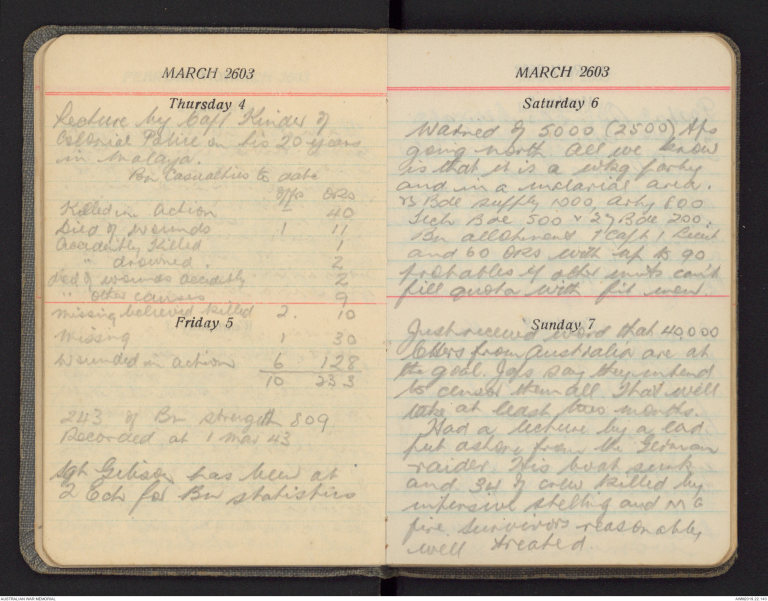 MARCH 2603
Thursday 4
Lecture by Capt Kinder of
Colonial Police on his 20 years
in Malaya.
Bn Casualties to date
Offs ORs
Killed in action - 40
Died of wounds 1 11
Accidently Killed 1
" drowned. 2
Died of wounds accidently 2
" other causes 9
Missing believed killed 2. 10
Friday 5
Missing 1 30
Wounded in action 6 128
10 233
243 of Bn strength 809
Recorded at 1 Mar 43
Sgt Gibson has been at
2 Ech for Bn statistics
MARCH 2603
Saturday 6
Warned of 5000 (2500) tps
going north All we know
is that it is a wkg party
and in a malarial area.
Bde supply 1000, arty 600
Bde 500 & 27 Bde 200.
Bn allotment 1 Capt 1 Lieut
and 60 ORs with up to 90
probables if other units can't
fill quota with fit men.
Sunday 7
Just received word that 40,000
letters from Australia are at
the gaol. Japs say they intend
to censor them all. That will
take at least two months.
Had a lecture by a lad
put ashore from the German
raider. His boat sunk
and 34 of crew killed by
intensive shelling and M G
fire. Survivors reasonably
well treated.
AUSTRALIAN WAR MEMORIAL